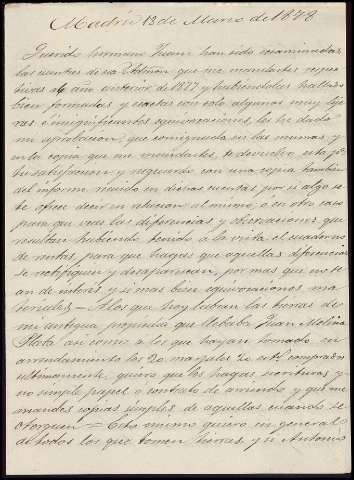 Madrid 13 de Marzo de 1878
Querido hermano Juan han sido ecsaminadas
las cuentas de esa que me mandastes respec
tivas al año anterior de 1877 y habiendolas hallado
bien formadas y esactas con solo algunas muy lije
ras e insignificantes equivocaciones, les he dado
mi aprobacion, que consignada en las mismas y
en la copia que me mandastes, te devuelvo esta pa
tu satisfaccion y resguardo con una copia tambien
del informe recaido en dichas cuentas por si algo se
te ofrece decir en alucion al mismo, o en otro caso
para que veas las diferencias y observaciones que
resultan habiendo tenido a la vista el cuaderno
de notas para que hagas que aquellas diferencias
se rectifiquen y desaparezcan, por mas que no se
an de interés y si mas bien equivocaciones ma
teriales = A los que hoy labran las tierras de
mi antigua propiedad que llebaba Juan Molina
Plata asi como a los que hayan tomado en
arrendamiento las 20 marjales 20 est. comprados
ultimamente, quiero que les hagas escrituras y
no simple papel o contrato de arriendo y que me
mandes copias simples de aquellas cuando se
otorguen = Esto mismo quiero en general
a todos los que tomen tierras, y si Antonio